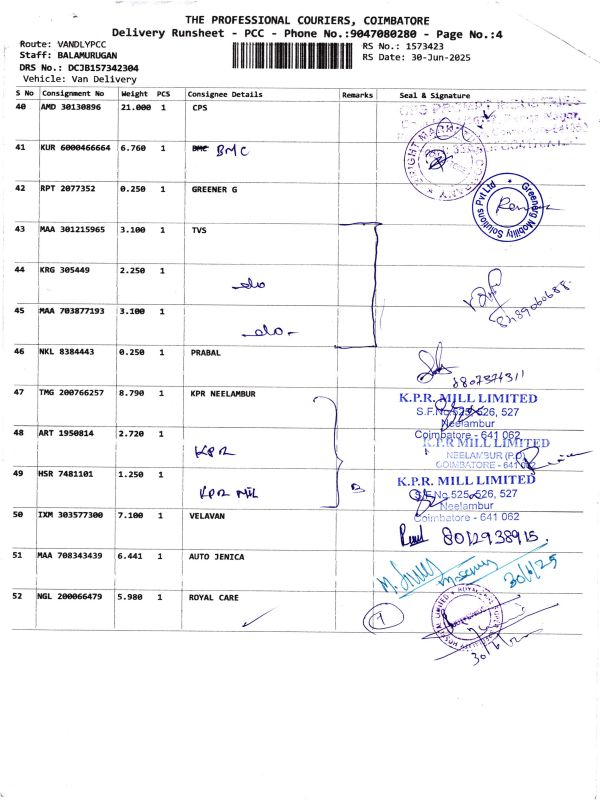 THE PROFESSIONAL COURIERS, COIMBATORE
Delivery Runsheet - PCC - Phone No.:9047080280 - Page No.:4
Route: VANDLYPCC
Staff: BALAMURUGAN
DRS No.: DCJB157342304
Vehicle: Van Delivery
RS No.: 1573423
RS Date: 30-Jun-2025
S No Consignment No Weight PCS Consignee Details Remarks Seal & Signature
40 AMD 30130896 21.000 1 CPS
41 KUR 6000466664 6.760 1 BMC BMC
42 RPT 2077352 0.250 1 GREENER G
Greenerg Mobility Solutions Pvt Ltd
43 MAA 301215965 3.100 1 TVS
44 KRG 305449 2.250 1 -do
8489060688.
45 MAA 703877193 3.100 1 -do-
46 NKL 8384443 0.250 1 PRABAL
47 TMG 200766257 8.790 1 KPR NEELAMBUR
K.P.R. MILL LIMITED
S.F.No.525, 526, 527
Neelambur
Coimbatore - 641 062
48 ART 1950814 2.720 1 KPR
K.P.R MILL LIMITED
NEELAMBUR (P.O)
COIMBATORE - 641 062
49 HSR 7481101 1.250 1 KPR MIL
K.P.R. MILL LIMITED
S.F.No.525, 526, 527
Neelambur
Coimbatore - 641 062
50 IXM 303577300 7.100 1 VELAVAN
8012938915
51 MAA 708343439 6.441 1 AUTO JENICA
30/6/25
52 NGL 200066479 5.980 1 ROYAL CARE